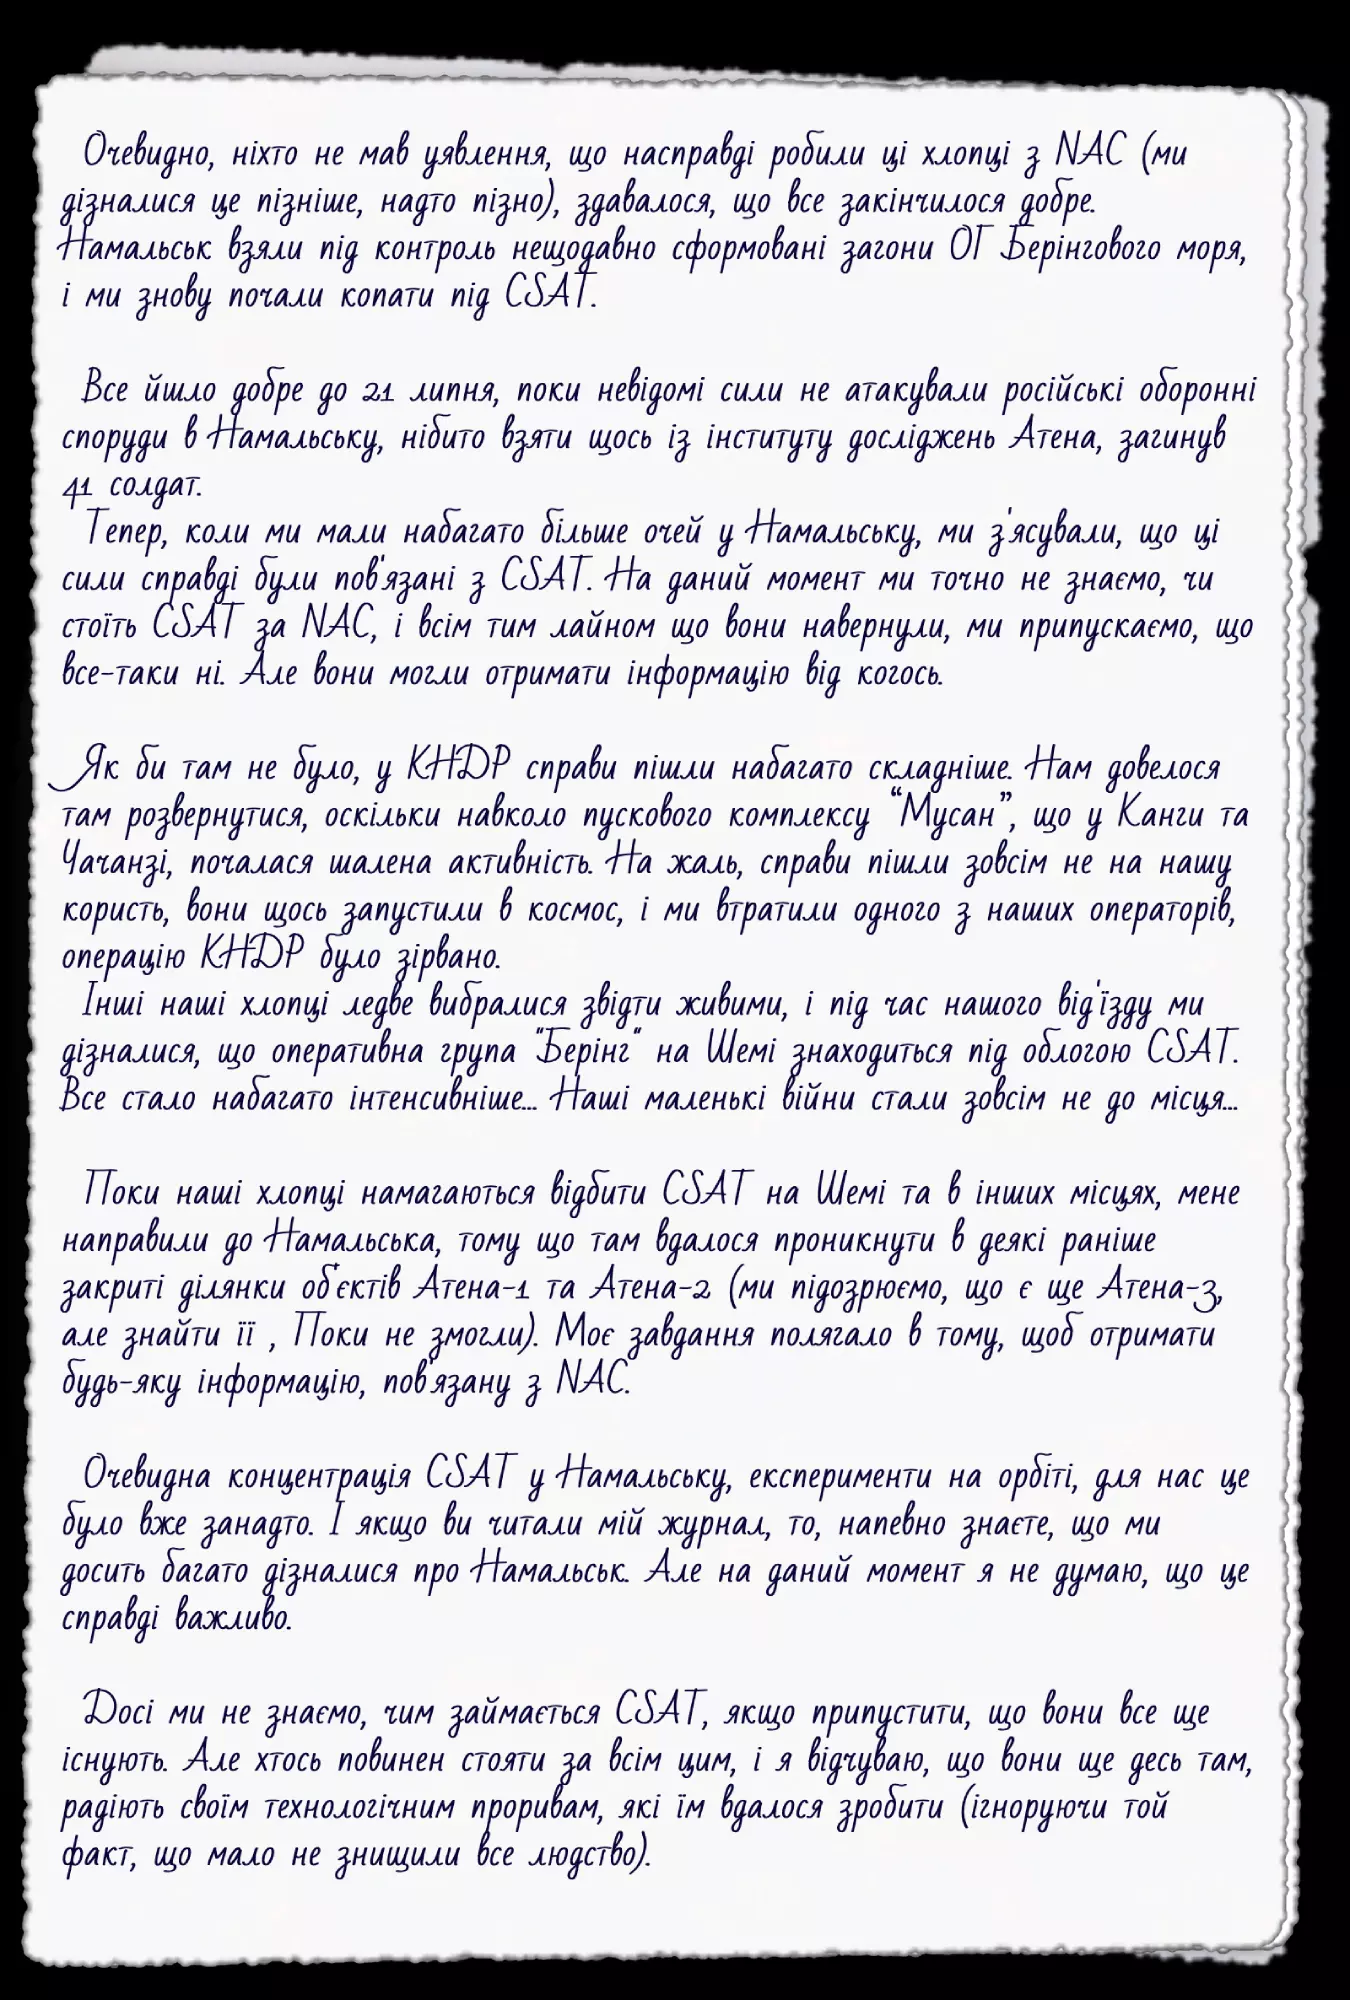 Очевидно, ніхто не мав уявлення, що насправді робили ці хлопці з NAC (ми
дізналися це пізніше, надто пізно), здавалося, що все закінчилося добре.
Намальськ взяли під контроль нещодавно сформовані загони ОГ Берінгового моря,
і ми знову почали копати під CSAT.
Все йшло добре до 21 липня, поки невідомі сили не атакували російські оборонні
споруди в Намальську, нібито взяти щось із інституту досліджень Атена, загинув
41 солдат.
Тепер, коли ми мали набагато більше очей у Намальську, ми з'ясували, що ці
сили справді були пов'язані з CSAT. На даний момент ми точно не знаємо, чи
стоїть CSAT за NAC, і всім тим лайном що вони навернули, ми припускаємо, що
все-таки ні. Але вони могли отримати інформацію від когось.
Як би там не було, у КНДР справи пішли набагато складніше. Нам довелося
там розвернутися, оскільки навколо пускового комплексу “Мусан”, що у Канги та
Чачанзі, почалася шалена активність. На жаль, справи пішли зовсім не на нашу
користь, вони щось запустили в космос, і ми втратили одного з наших операторів,
операцію КНДР було зірвано.
Інші наші хлопці ледве вибралися звідти живими, і під час нашого від'їзду ми
дізналися, що оперативна група "Берінг" на Шемі знаходиться під облогою CSAT.
Все стало набагато інтенсивніше... Наші маленькі війни стали зовсім не до місця...
Поки наші хлопці намагаються відбити CSAT на Шемі та в інших місцях, мене
направили до Намальська, тому що там вдалося проникнути в деякі раніше
закриті ділянки об'єктів Атена-1 та Атена-2 (ми підозрюємо, що є ще Атена-3,
але знайти її , Поки не змогли). Моє завдання полягало в тому, щоб отримати
будь-яку інформацію, пов'язану з NAC.
Очевидна концентрація CSAT у Намальську, експерименти на орбіті, для нас це
було вже занадто. І якщо ви читали мій журнал, то, напевно знаєте, що ми
досить багато дізналися про Намальськ. Але на даний момент я не думаю, що це
справді важливо.
Досі ми не знаємо, чим займається CSAT, якщо припустити, що вони все ще
існують. Але хтось повинен стояти за всім цим, і я відчуваю, що вони ще десь там,
радіють своїм технологічним проривам, які їм вдалося зробити (ігноруючи той
факт, що мало не знищили все людство).